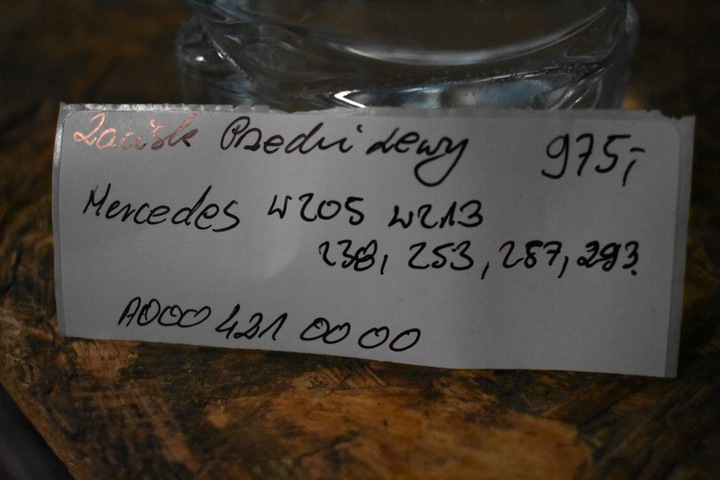 Zacisk Przedni Lewy 975,-
Mercedes W205 W213
238, 253, 257, 293
A000 421 00 00